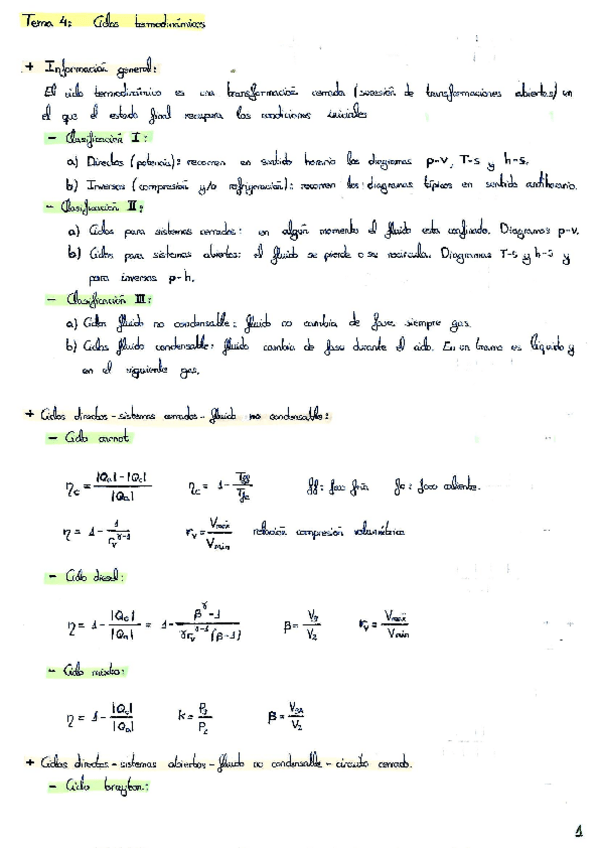 Tema 4: Ciclos termodinámicos
+ Información general:
El ciclo termodinámico es una transformación cerrada (sucesión de transformaciones abiertas) en
el que el estado final recupera las condiciones iniciales
- Clasificación I:
a) Directos (potencia): recorren en sentido horario los diagramas p-v, T-s y h-s.
b) Inversos (compresión y/o refrigeración): recorren los diagramas típicos en sentido antihorario.
- Clasificación II:
a) Ciclos para sistemas cerrados: en algún momento el fluido esta confinado. Diagramas p-v.
b) Ciclos para sistemas abiertos: el fluido se pierde o se recircula. Diagramas T-s y h-s y
para inversos p-h.
- Clasificación III:
a) Ciclos fluido no condensable: fluido no cambia de fase, siempre gas.
b) Ciclos fluido condensable: fluido cambia de fase durante el ciclo. En un tramo es líquido y
en el siguiente gas.
+ Ciclos directos - sistemas cerrados - fluido no condensable:
- Ciclo carnot
η_c = (|Q_a| - |Q_c|) / |Q_a|   η_c = 1 - T_ff / T_fc   ff: foco frío   fc: foco caliente.
η = 1 - 1 / r_v^(γ-1)   r_v = V_máx / V_mín   relación compresión volumétrica
- Ciclo diesel:
η = 1 - |Q_c| / |Q_a| = 1 - (β^γ - 1) / (γ r_v^(γ-1) (β - 1))   β = V_3 / V_2   r_v = V_máx / V_mín
- Ciclo mixto:
η = 1 - |Q_c| / |Q_a|   k = P_3 / P_2   β = V_3A / V_2
+ Ciclos directos - sistemas abiertos - fluido no condensable - circuito cerrado.
- Ciclo brayton:
1